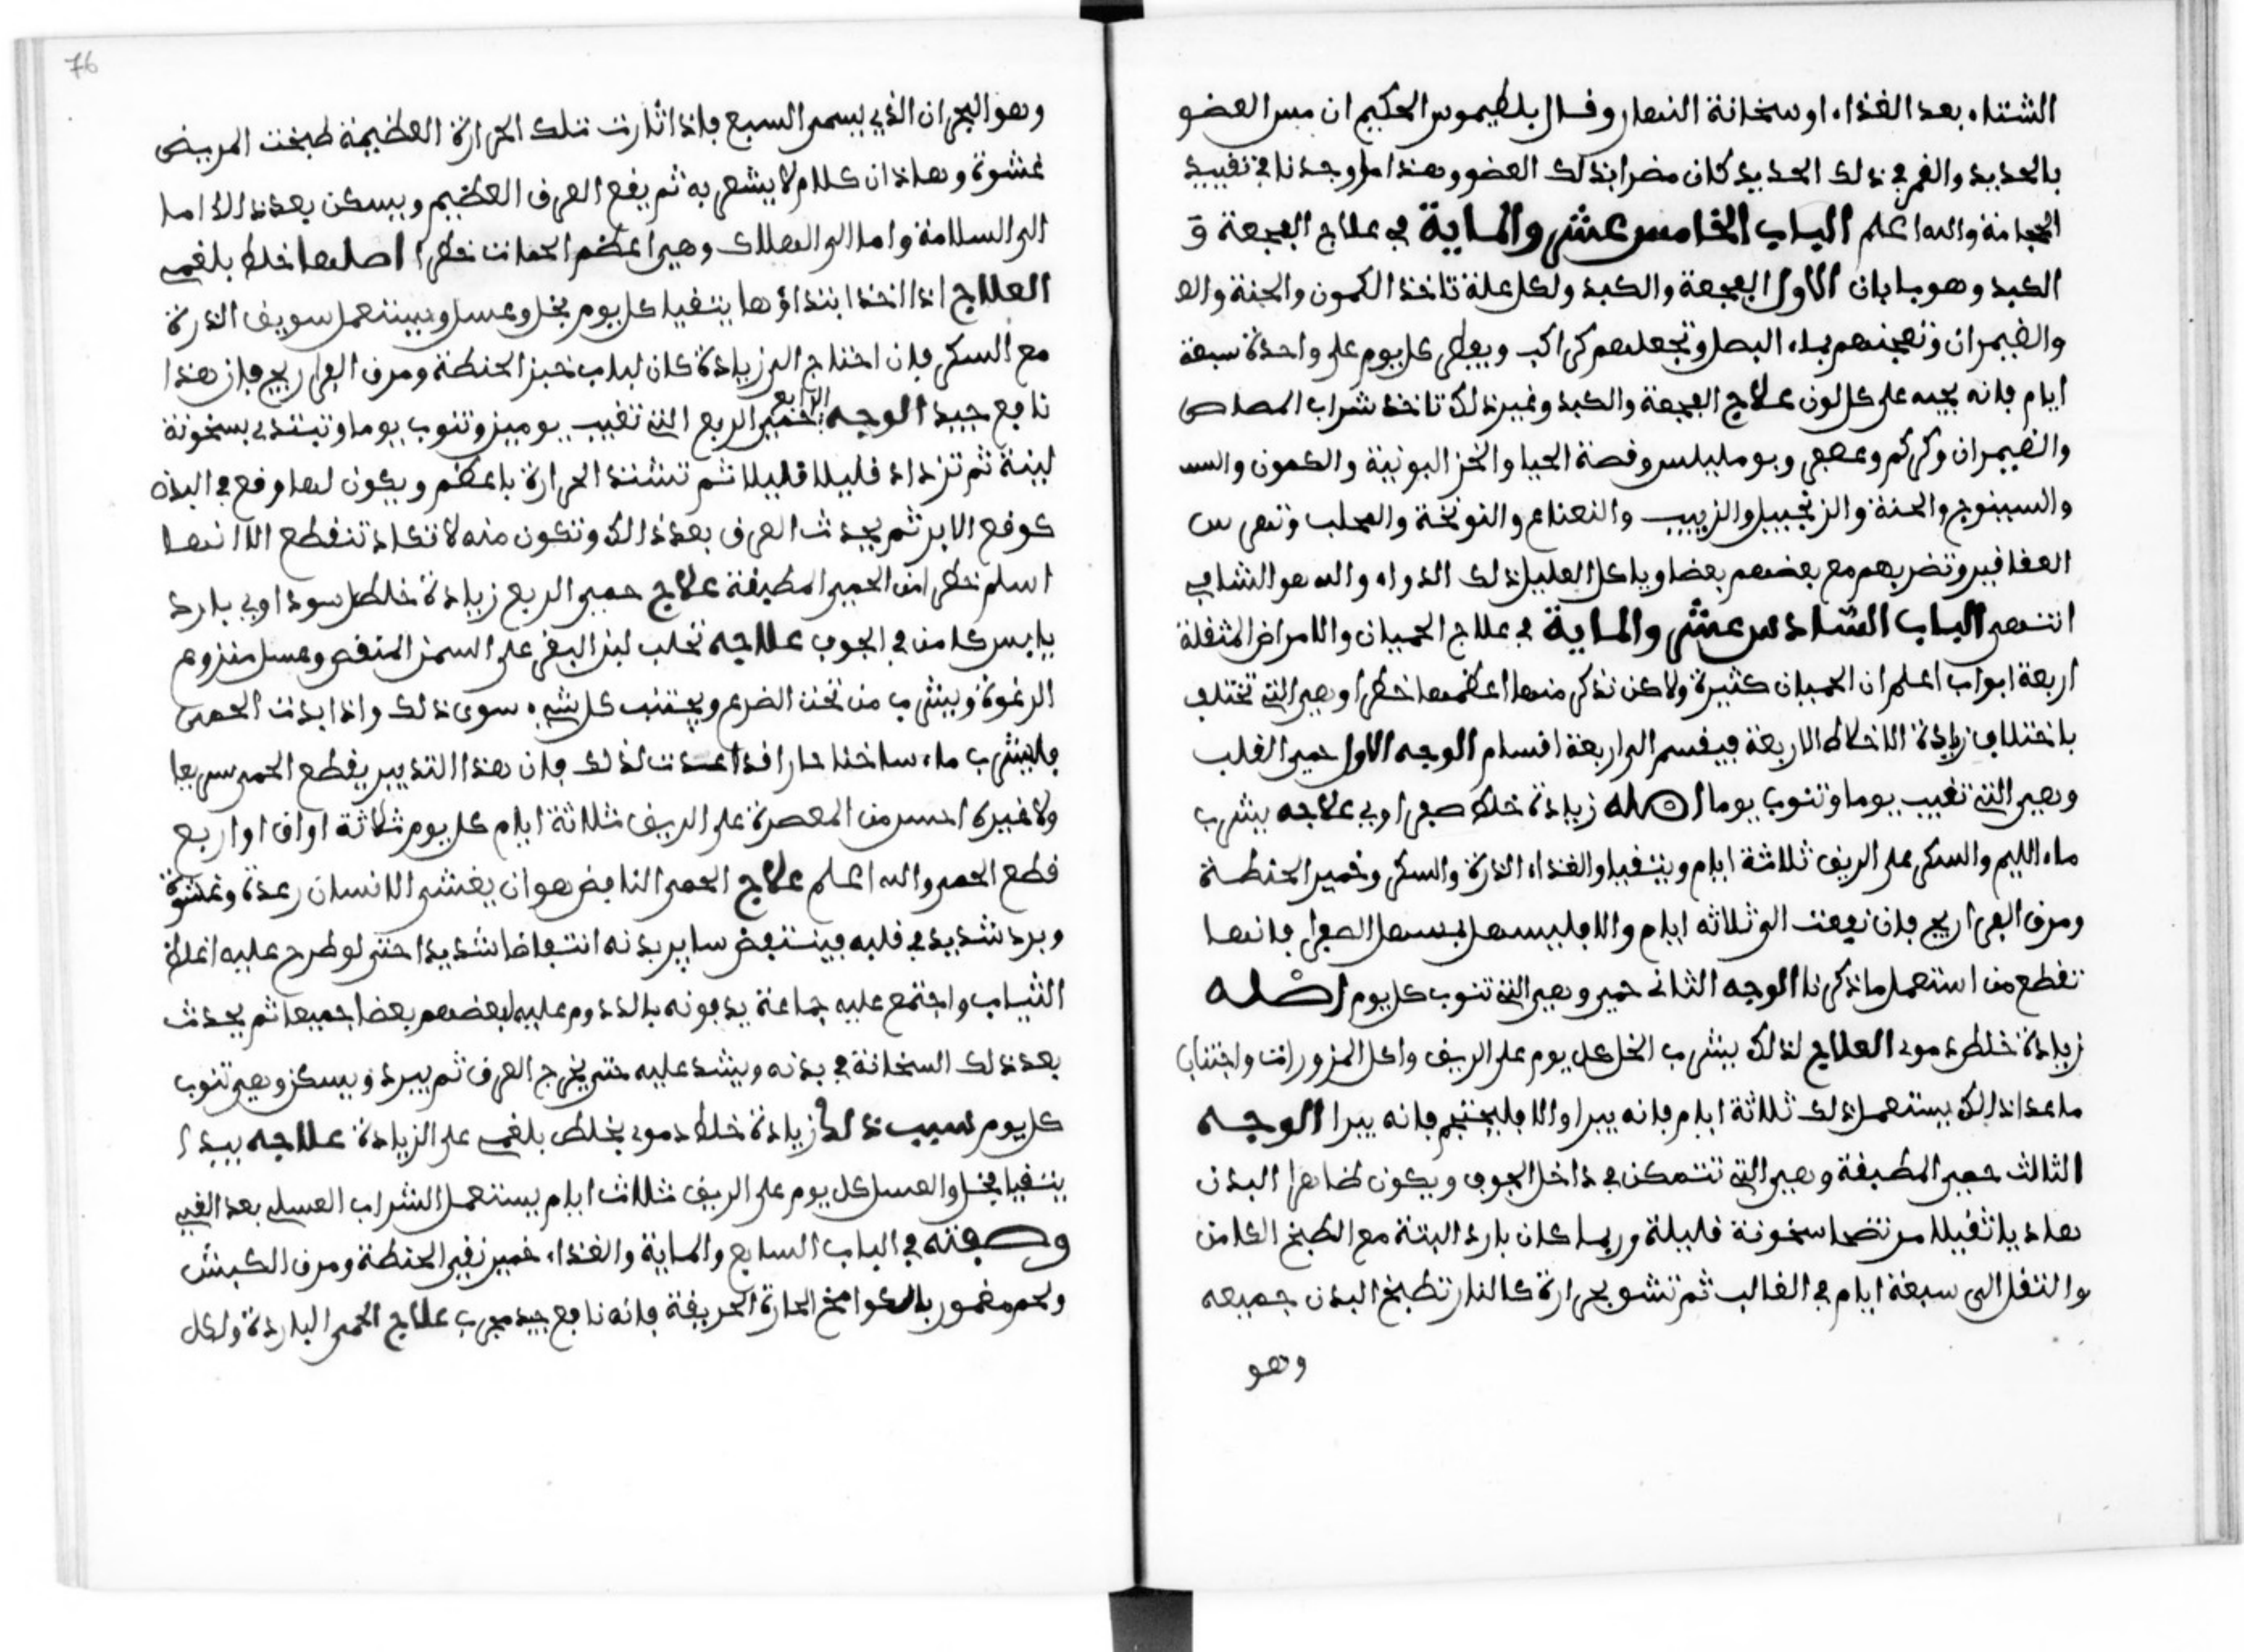 الشتاء بعد الغذاء او سخانة النهار وقال بطليموس الحكيم ان مس العضو
بالحديد والقمر في ذلك الحديد كان مضرا بذلك العضو وهذا ما وجدنا في تقييد
الحجامة والله اعلم الباب الخامس عشر والماية في علاج الفجعة و
الكبد وهو بابان الاول الفجعة والكبد ولكل علة تاخذ الكمون والحبة
والضيمران وتعجنهم بماء البصل وتجعلهم كراكب ويفطر كل يوم على واحدة سبعة
ايام فانه يجيه على كل لون علاج الفجعة والكبد وغير ذلك تاخذ شراب
والضيمران وكركم وبومليلس وقصة الحيا والخز البونية والكمون
والسينوج والحبة والزنجبيل والزبيب والنعناع والنونخة والمحلب وتهرس
العقاقير وتضربهم مع بعضهم بعضا وياكل العليل ذلك الدواء والله هو الشافي
انتهى الباب السادس عشر والماية في علاج الحميان والامراض المثقلة
اربعة ابواب اعلم ان الحميان كثيرة ولاكن نذكر منها اعظمها خطرا وهي التي تختلف
باختلاف زيادة الاخلاط الاربعة فينقسم الى اربعة اقسام الوجه الاول حمى القلب
وهي التي تغيب يوما وتنوب يوما اصله زيادة خلط صفراوي علاجه يشرب
ماء الليم والسكر على الريق ثلاثة ايام ويتقيا والغذاء الذرة والسكر وخمير الحنطة
ومرق الفراريج فان نفعت الى ثلاثه ايام والا فليسهل بمسهل الصفرا فانها
تقطع من استعمل ما ذكرنا الوجه الثاني حمى وهي التي تنوب كل يوم اصله
زيادة خلط دموي العلاج لذلك يشرب الخل كل يوم على الريق واكل المزورات واجتناب
ما عدا ذلك يستعمل ذلك ثلاثة ايام فانه يبرا والا فليحتجم فانه يبرا الوجه
الثالث حمى المطبقة وهي التي تتمكن في داخل الجوف ويكون ظاهرا البدن
هاديا ثقيلا سخونة قليلة وربما كان بارد البتة مع الطبخ الكامن
والثقل الى سبعة ايام في الغالب ثم تنشو بحرارة كالنار تطبخ البدن جميعه
وهو
76
وهو البحران الذي يسمى السبع فاذا ثارت تلك الحرارة العظيمة طبخت المريض
غشوة وهاذان كلام لا يشعر به ثم يقع العرق العظيم ويسكن بعد ذلك اما
الى السلامة واما الى الهلاك وهي اعظم الحمات خطرا اصلها خلط بلغمي
العلاج اذا اخذ ابتداؤها يتقيا كل يوم بخل وعسل ويستعمل سويق الذرة
مع السكر فان احتاج الى زيادة كان لباب خبز الحنطة ومرق الفراريج فان هذا
نافع جيد الوجه الرابع حمى الربع التي تغيب يومين وتنوب يوما وتبتدي بسخونة
لينة ثم تزداد قليلا قليلا ثم تشتد الحرارة باعظم ويكون لها وقع في البدن
كوقع الابر ثم يحدث العرق بعد ذلك وتكون منه لا تكاد تنقطع الا انها
اسلم خطرا من الحمى المطبقة علاج حمى الربع زيادة خلط سوداوي بارد
يابس كامن في الجوف علاجه تحلب لبن البقر على السمن المنقى وعسل منزوع
الرغوة ويشرب من تحت الضرع ويجتنب كل شيء سوى ذلك واذا بدت الحمى
فليشرب ماء ساخنا حارا قد اعدت لذلك فان هذا التدبير يقطع الحمى سريعا
ولا غيره احسن من المعصرة على الريق ثلاثة ايام كل يوم ثلاثة اواق او اربع
قطع الحمى والله اعلم علاج الحمى النافض هو ان يغشى الانسان رعدة وغشوة
وبرد شديد في قلبه فينتفض ساير بدنه انتفاضا شديدا حتى لو طرح عليه اغلاق
الثياب واجتمع عليه جماعة يدفونه بالدروم عليه لبعضهم بعضا جميعا ثم يحدث
بعد ذلك السخانة في بدنه ويشد عليه حتى يخرج العرق ثم يبرد ويسكن وهي تنوب
كل يوم سبب ذلك زيادة خلط دموي بخلط بلغمي على الزيادة علاجه يبدا
يتقيا بخل والعسل كل يوم على الريق ثلاث ايام يستعمل الشراب العسلي بعد القيي
وصفته في الباب السابع والماية والغذاء خمير نقي الحنطة ومرق الكبش
ولحم مغمور بالكوامخ الحارة الحريفة فانه نافع جيد مجرب علاج الحمى الباردة ولكل